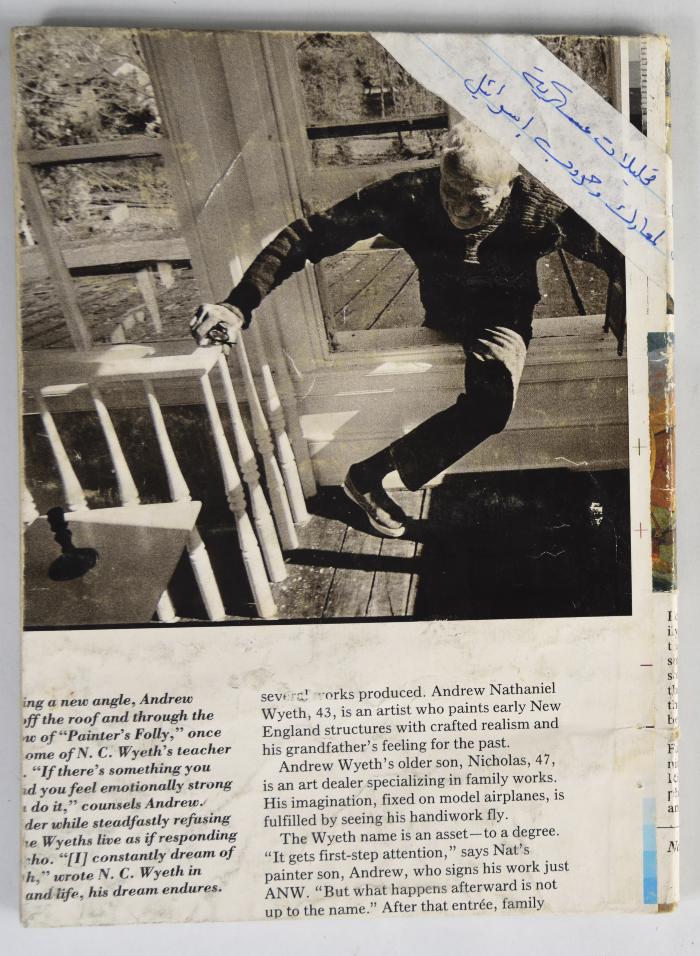 تحليلات عسكرية
لمعارك وحروب اسرائيل
ing a new angle, Andrew
off the roof and through the
w of "Painter's Folly," once
ome of N. C. Wyeth's teacher
. "If there's something you
nd you feel emotionally strong
do it," counsels Andrew.
der while steadfastly refusing
e Wyeths live as if responding
cho. "[I] constantly dream of
h," wrote N. C. Wyeth in
and life, his dream endures.
several works produced. Andrew Nathaniel
Wyeth, 43, is an artist who paints early New
England structures with crafted realism and
his grandfather's feeling for the past.
Andrew Wyeth's older son, Nicholas, 47,
is an art dealer specializing in family works.
His imagination, fixed on model airplanes, is
fulfilled by seeing his handiwork fly.
The Wyeth name is an asset—to a degree.
"It gets first-step attention," says Nat's
painter son, Andrew, who signs his work just
ANW. "But what happens afterward is not
up to the name." After that entrée, family